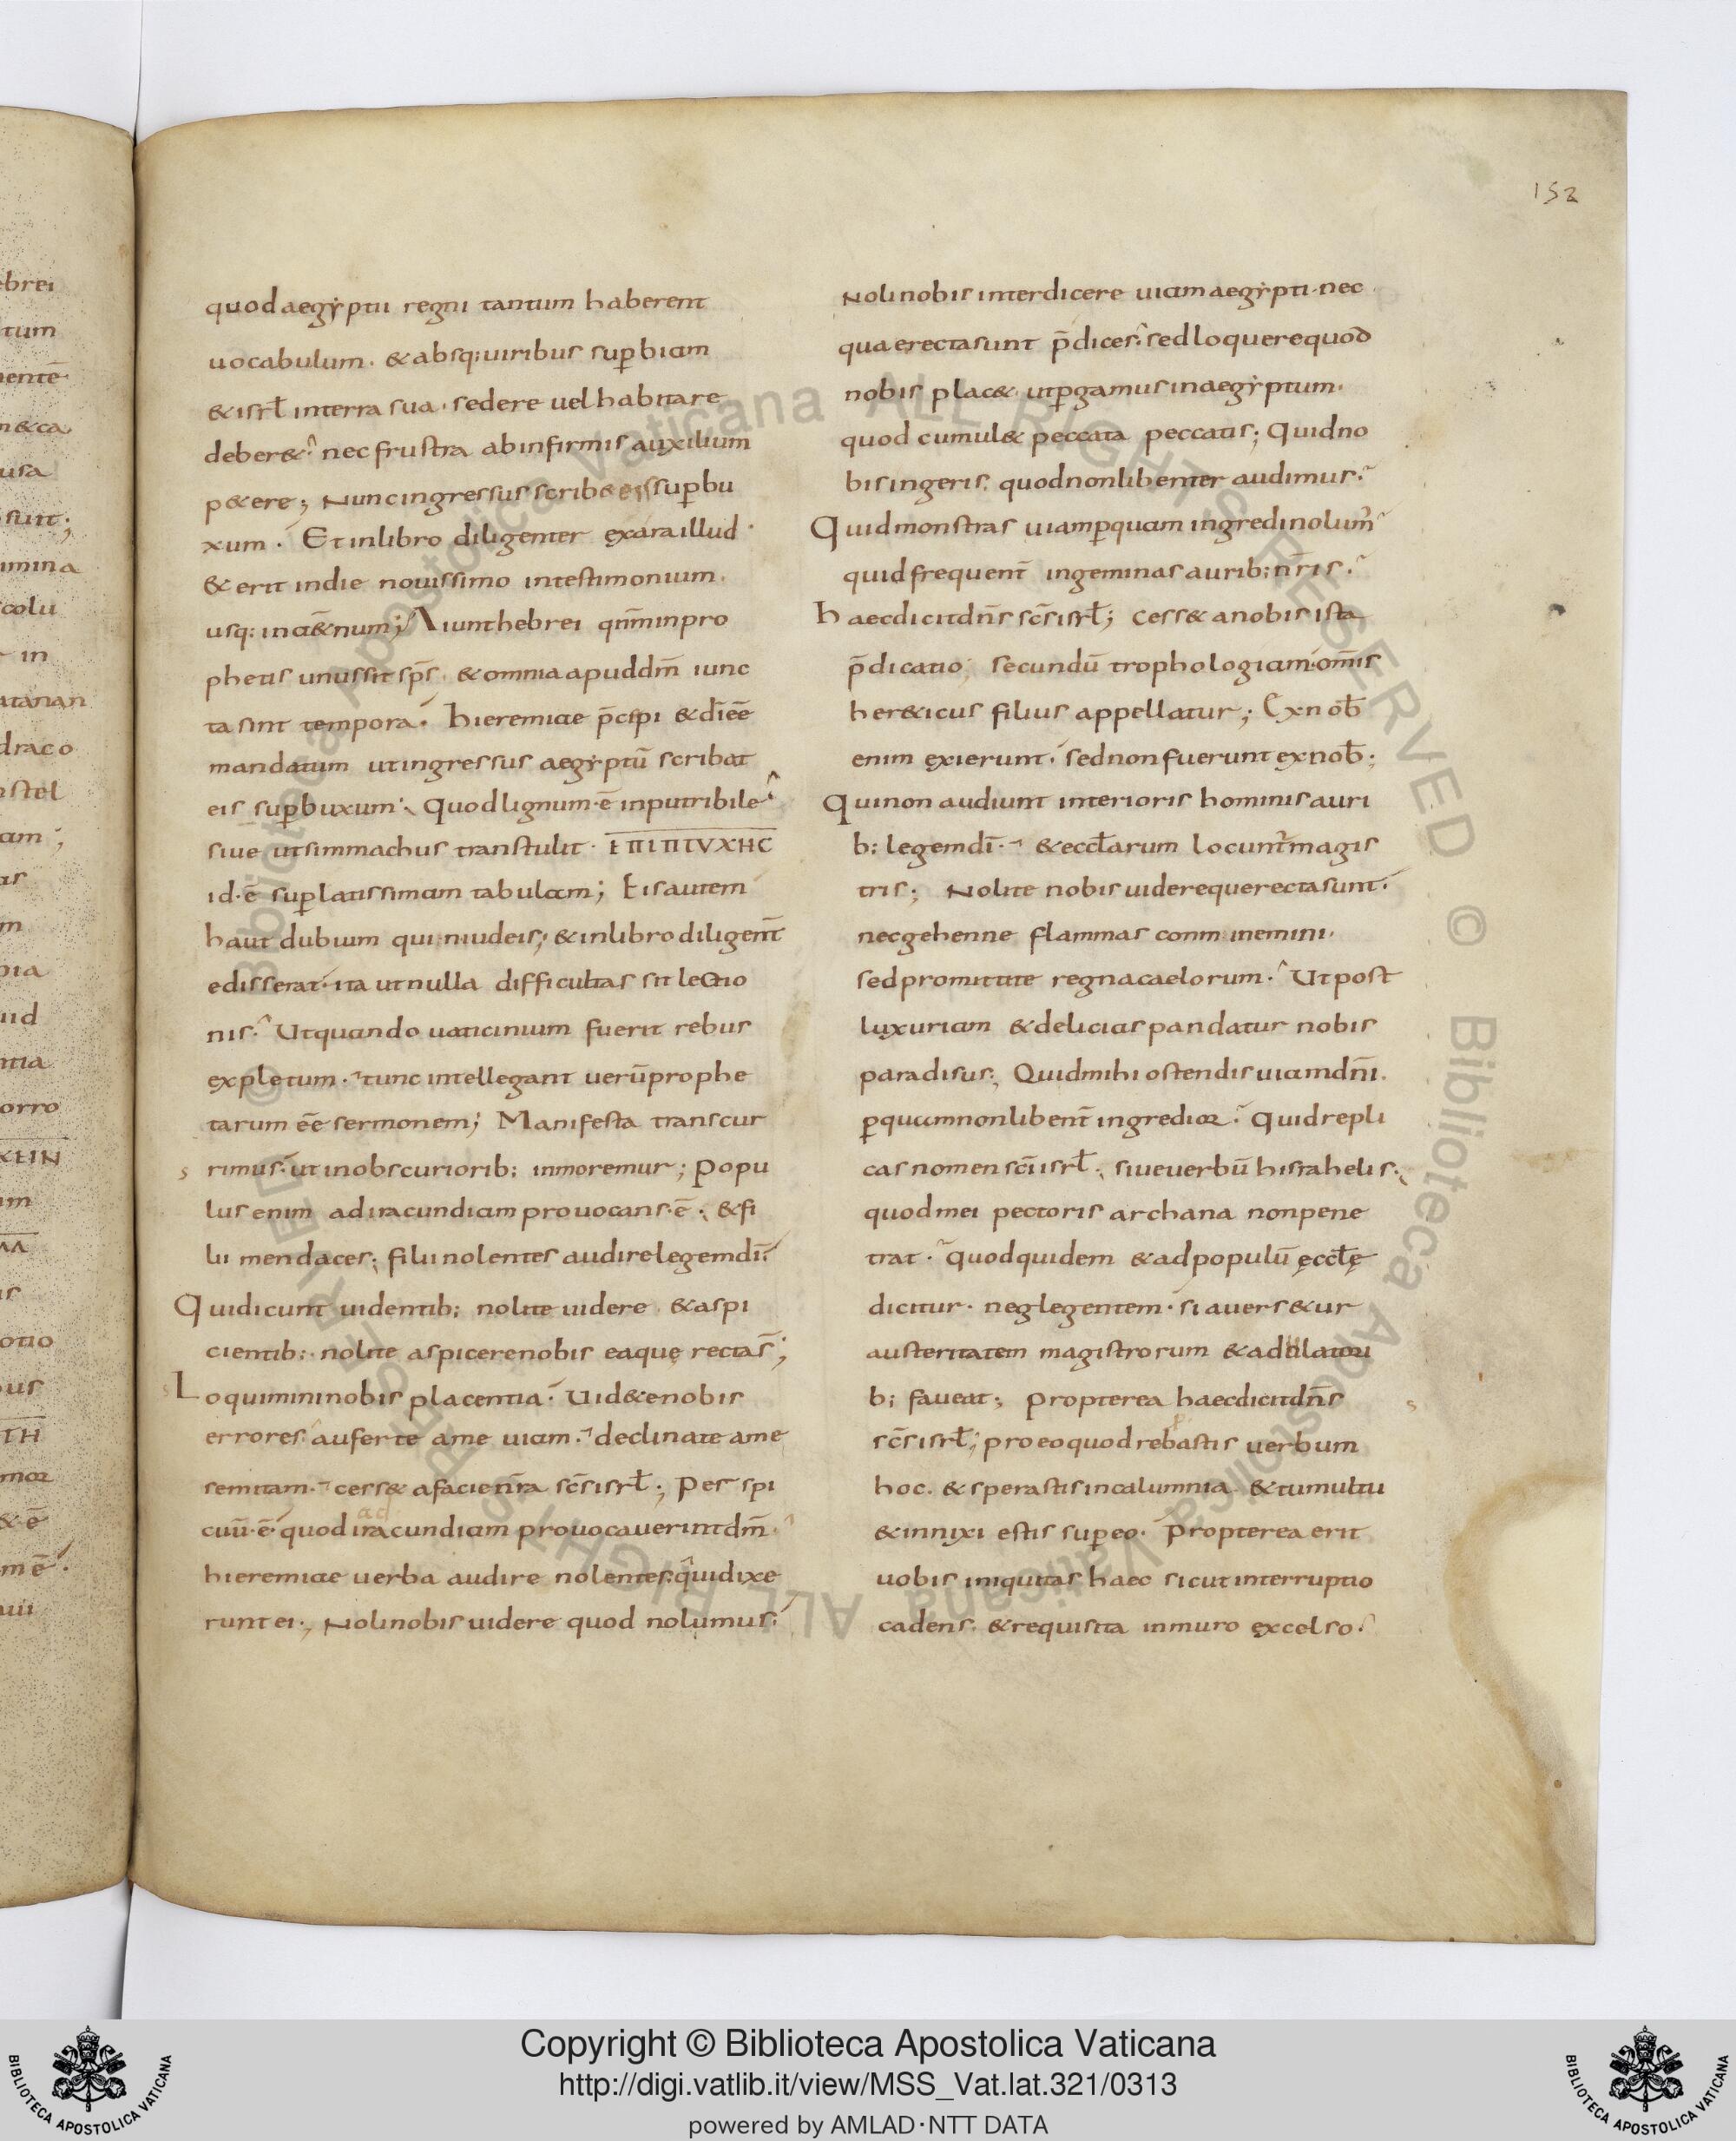 152
quod aegyptii regni tantum haberent
uocabulum. & absq; uiribus sup̄biam
& isrł in terra sua. sedere uel habitare
deber&. nec frustra ab infirmis auxilium
p&ere; Nunc ingressus scribe eis sup̄ bu
xum. Et in libro diligenter exara illud
& erit in die nouissimo in testimonium.
usq: in a&̄num; Aiunt hebrei qm̄ in pro
phetis unus sit sp̄s. & omnia apud dm̄ iunc
ta sint tempora. hieremiae p̄cipi & diēē
mandatum ut ingressus aegyptū scribat
eis sup̄ buxum. quod lignum ē inputribile
siue ut simmachus transtulit. ΕΠΙΠΤΥΧΗC
id ē sup̄ latissimam tabulam; Eis autem
haut dubium quin iudeis; & in libro diligent̄
edisserat. ita ut nulla difficultas sit lectio
nis. Ut quando uaticinium fuerit rebus
expletum. tunc intellegant uerū prophe
tarum ēē sermonem; Manifesta transcur
rimus. ut in obscuriorib; inmoremur; Popu
lus enim ad iracundiam prouocans ē. & fi
lii mendaces; filii nolentes audire legem dī.
Qui dicunt uidentib; nolite uidere. & aspi
cientib: nolite aspicere nobis ea quę recta s̄;
Loquimini nobis placentia. Uid&e nobis
errores. auferte a me uiam. declinate a me
semitam. cess& a facie nr̄a sc̄s isrł; Perspi
cuū ē quod ad iracundiam prouocauerint dm̄.
hieremiae uerba audire nolentes. qui dixe
runt ei; Noli nobis uidere quod nolumus.
Noli nobis interdicere uiam aegypti. nec
qua erecta sunt p̄dices. sed loquere quod
nobis plac&. ut p̄gamus in aegyptum.
quod cumul& peccata peccatis; Quid no
bis ingeris. quod non libenter audimus.
Quid monstras uiam p̄ quam ingredi nolum̄
quid frequent̄ ingeminas aurib; nr̄is.
haec dicit dn̄s sc̄s isrł; Cess& a nobis ista
p̄dicatio; secundū trophologiam. om̄is
her&icus filius appellatur; Ex nob̄
enim exierunt. sed non fuerunt ex nob̄;
Qui non audiunt interioris hominis auri
b: legem dī. & eccłarum locunt̄ magis
tris; Nolite nobis uidere que recta sunt.
nec gehenne flammas conminemini.
sed promittite regna caelorum. Ut post
luxuriam & delicias pandatur nobis
paradisus; Quid mihi ostendis uiam dn̄i.
p̄ quam non libent̄ ingredior. Quid repli
cas nomen sc̄i isrł. siue uerbū histrahelis.
quod mei pectoris archana non pene
trat. quod quidem & ad populū ęccłę
dicitur. neglegentem. si auers&ur
austeritatem magistrorum & adulatori
b; faueat; Propterea haec dicit dn̄s
sc̄s isrł; pro eo quod reb astis uerbum
hoc. & sperastis in calumnia & tumultu
& innixi estis super eo. Propterea erit
uobis iniquitas haec sicut interruptio
cadens. & requisita in muro excelso.
Copyright © Biblioteca Apostolica Vaticana
http://digi.vatlib.it/view/MSS_Vat.lat.321/0313
powered by AMLAD·NTT DATA
BIBLIOTECA APOSTOLICA VATICANA
BIBLIOTECA APOSTOLICA VATICANA